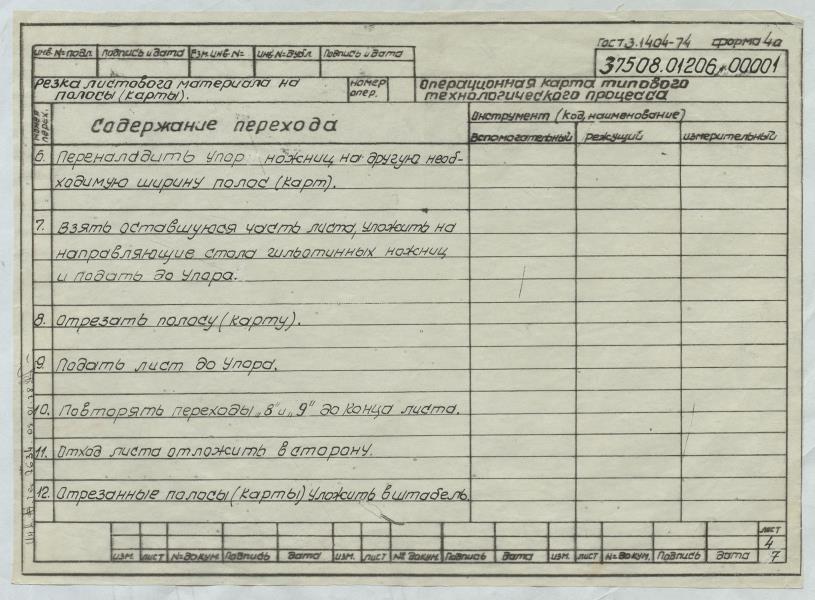 ГОСТ 3.1404-74 Форма 4а
Инв. №подл. Подпись и дата Взм. инв. № Инв. №дубл. Подпись и дата
37508.01206.00001
Резка листового материала на
полосы (карты).
номер
опер.
Операционная карта типового
технологического процесса
номер
перех.
Содержание перехода
Инструмент (код, наименование)
Вспомогательный режущий измерительный
6. Переналадить упор ножниц на другую необ-
ходимую ширину полос (карт).
7. Взять оставшуюся часть листа, уложить на
направляющие стола гильотинных ножниц
и подать до упора.
8. Отрезать полосу (карту).
9. Подать лист до упора.
10. Повторять переходы „8" и „9" до конца листа.
11. Отход листа отложить в сторону.
12. Отрезанные полосы (карты) уложить в штабель.
лист
4
7
изм. лист №докум. Подпись дата изм. лист № докум. Подпись дата изм. лист №докум. Подпись дата